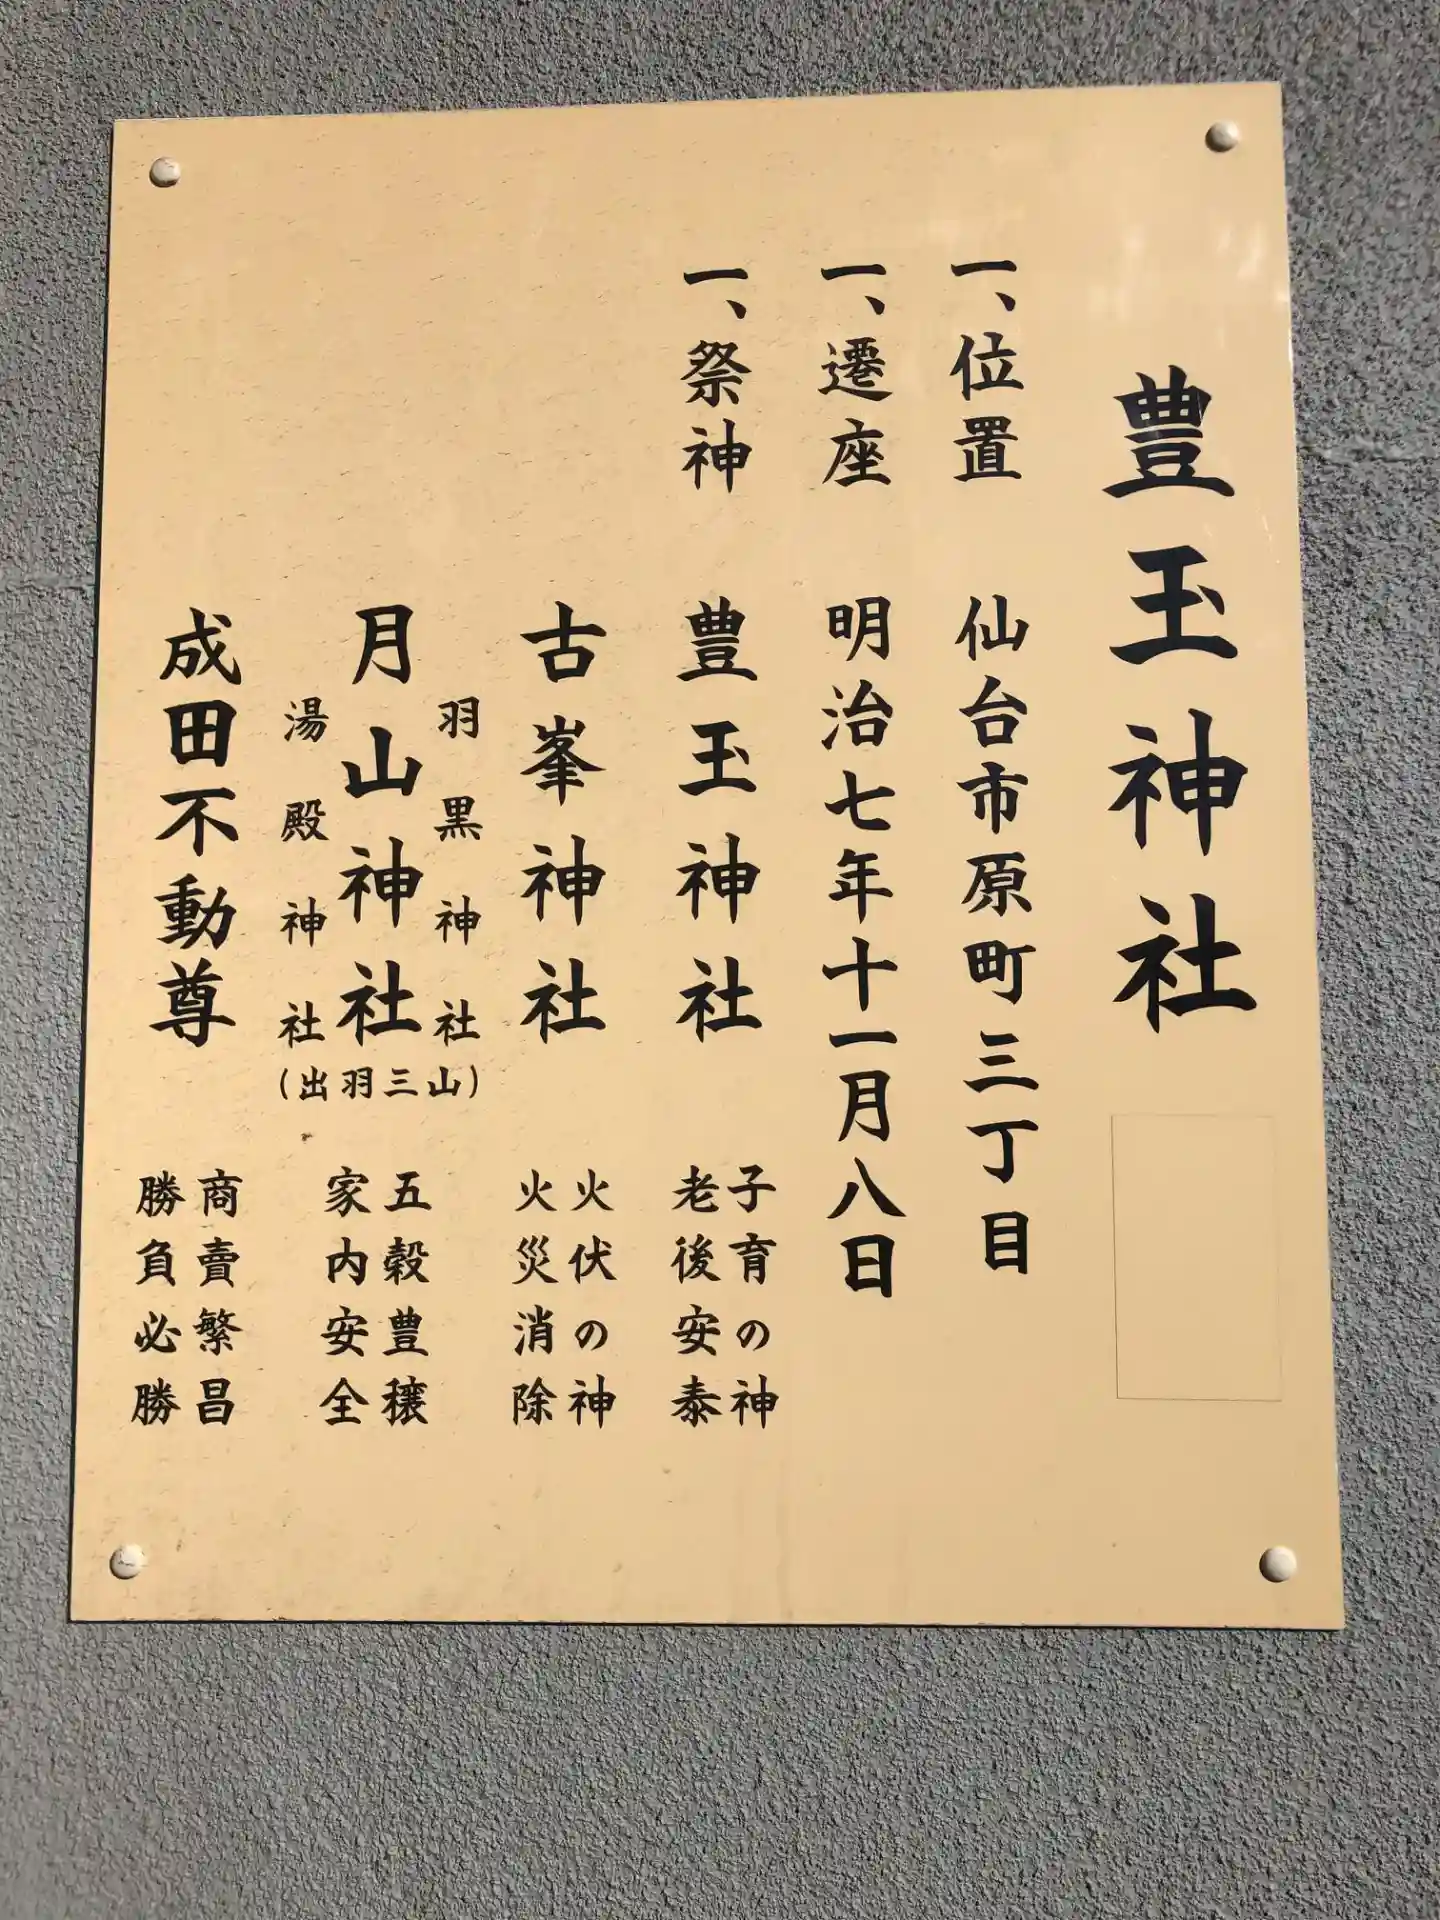 豊玉神社
一、位置 仙台市原町三丁目
一、遷座 明治七年十一月八日
一、祭神 豊玉神社 子育の神
老後安泰
古峯神社 火伏の神
火災消除
羽黒神社
月山神社
湯殿神社
(出羽三山)
五穀豊穣
家内安全
成田不動尊 商賣繁昌
勝負必勝